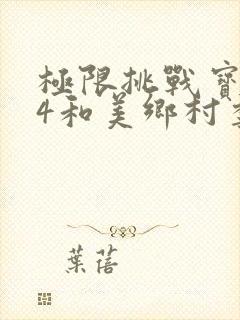 極限挑戰寶
4和美鄉村
葉蓓